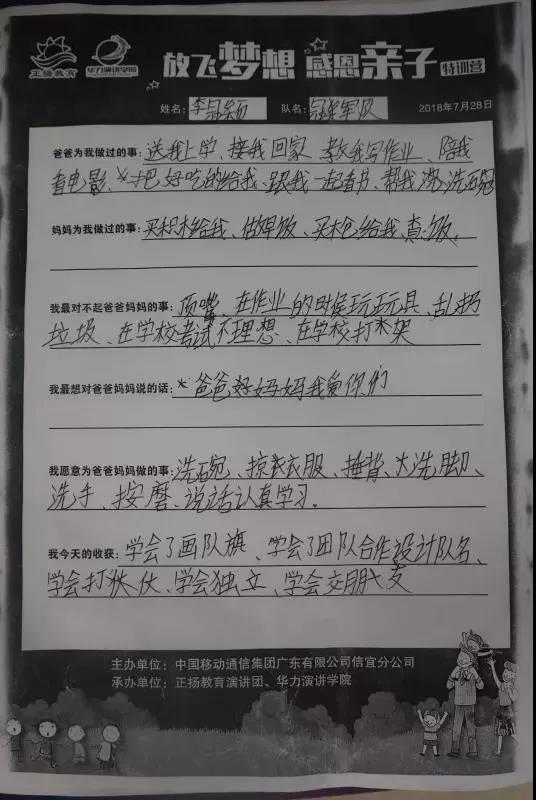 正扬教育 华力演讲学院 放飞梦想 感恩亲子 特训营
姓名: 队名: 冠军队 2018年7月28日
爸爸为我做过的事: 送我上学、接我回家、教我写作业、陪我
看电影、把好吃的给我、跟我一起看书、帮我洗碗
妈妈为我做过的事: 买积木给我、做早饭、买 给我、 饭。
我最对不起爸爸妈妈的事: 顶嘴、在作业的时候玩玩具、乱扔
垃圾、在学校考试不理想、在学校打架
我最想对爸爸妈妈说的话: 爸爸好妈妈我爱你们
我愿意为爸爸妈妈做的事: 洗碗、掠衣服、捶背、洗脚、
洗手、按磨、说话认真学习.
我今天的收获: 学会了画队旗、学会了团队合作设计队名、
学会打 伙、学会独立、学会交朋友
主办单位: 中国移动通信集团广东有限公司信宜分公司
承办单位: 正扬教育演讲团、华力演讲学院